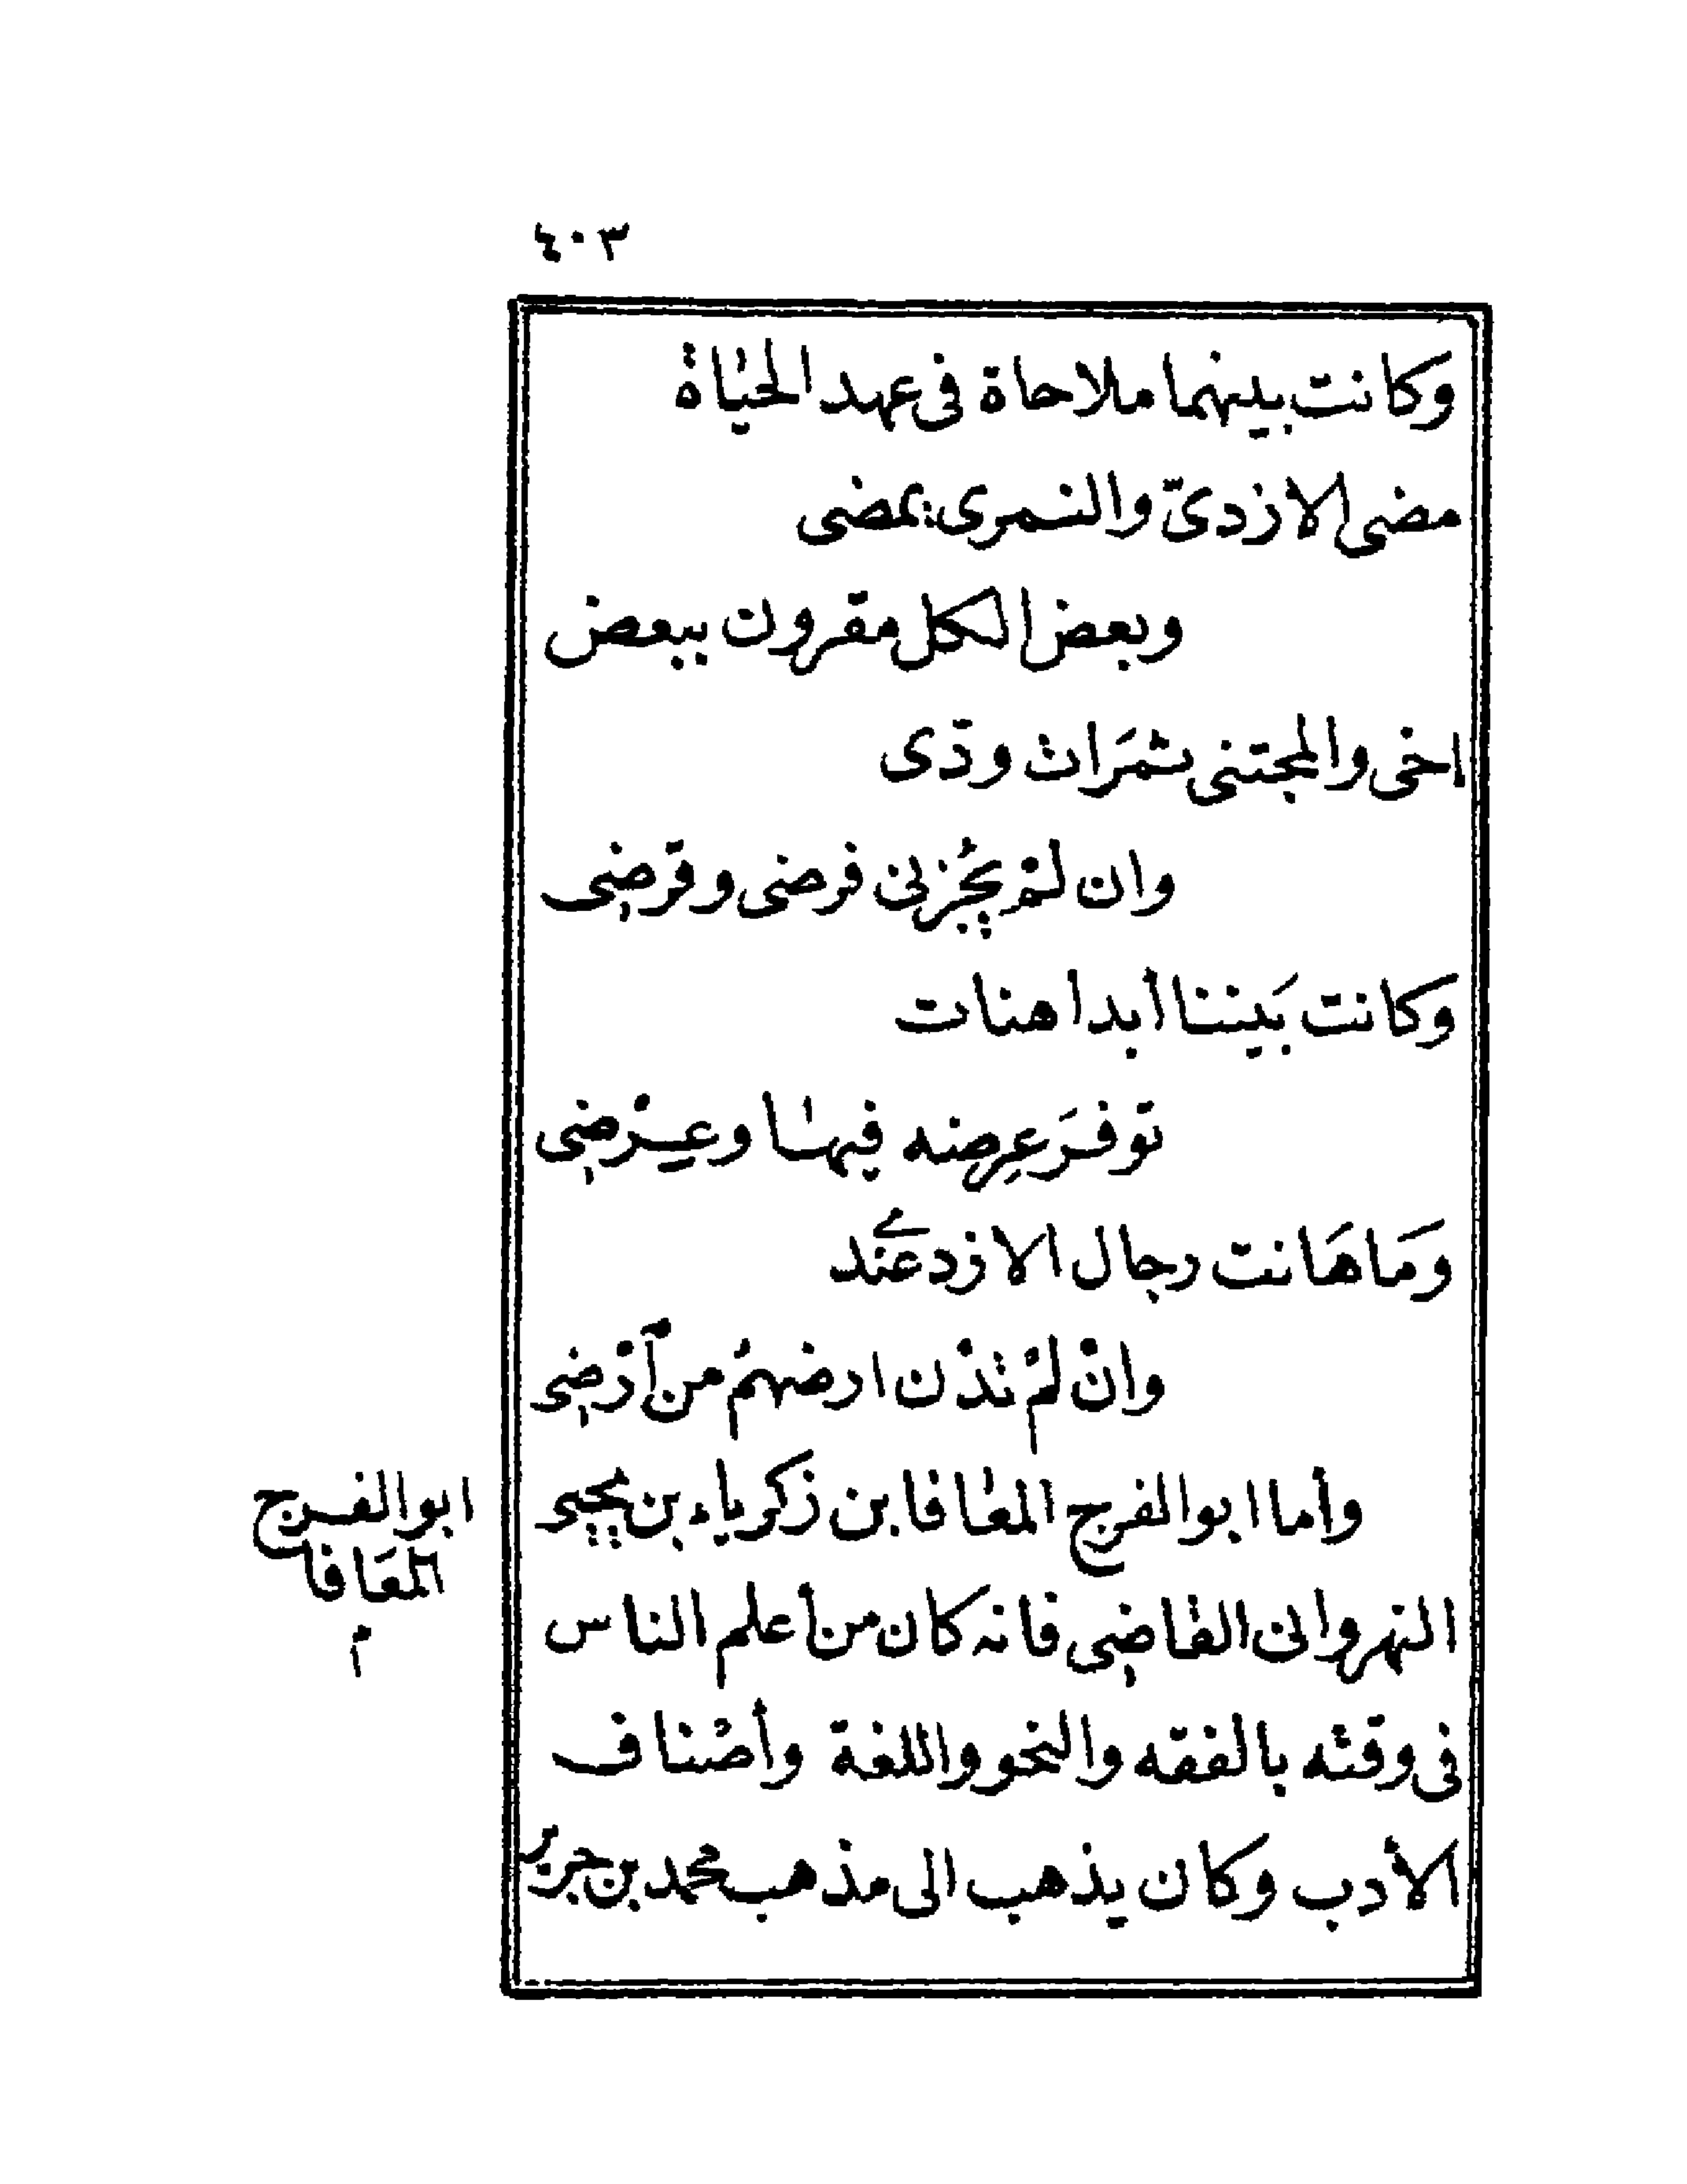 ٤٠٣
وكانت بينهما ملاحاة فى عهد الحياة
مضى الازدىّ والنمرى يمضى
وبعض الكل مقرون ببعض
اخى والمجتنى ثمَرات ودّى
وان لمْ يَجُزنى فرضى وقرضى
وكانت بَيننا أبدا هنات
توفرَ عِرضه فيها وعِرْضى
وَما هَانت رجال الازد عندى
وانْ لمْ تدْن ارضهمُ من أرْضى
وأما ابو الفرج المعافا بن زكرياء بن يحيى
النهروانى القاضى فانه كان من أعلم الناس
فى وقته بالفقه والنحو واللغة وأصْناف
الأدب وكان يذهب الى مذهب محمد بن جرير
ابو الفرج
المعَافا
م